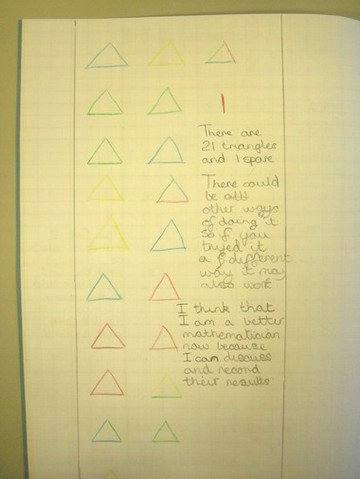 There are
21 triangles
and 1 spare
There could
be
other ways
of doing it
so if you
tryed it
a different
way it may
also work
I think that
I am a better
mathematician
now because
I can discuss
and record
their results